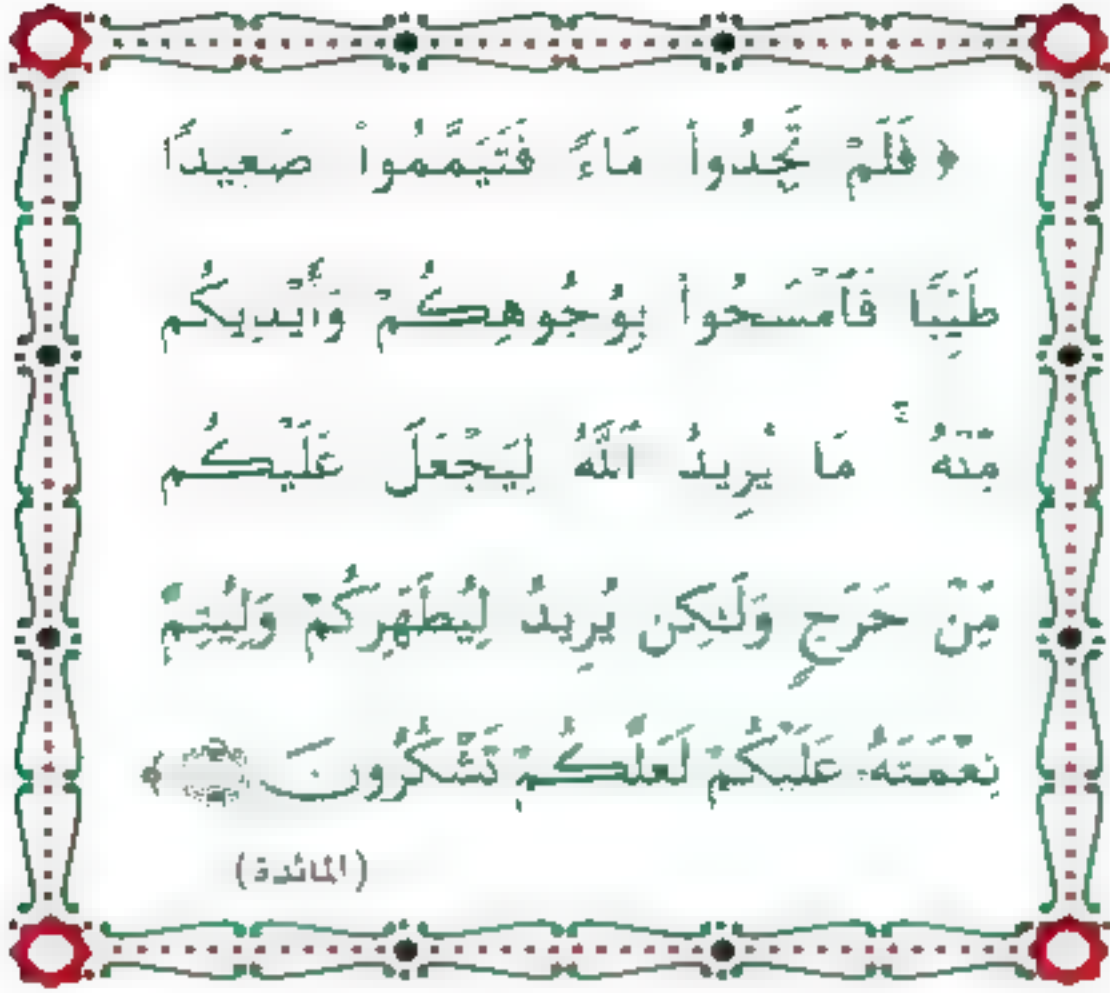 ﴿ فَلَمْ تَجِدُوا۟ مَآءً فَتَيَمَّمُوا۟ صَعِيدًا
طَيِّبًا فَٱمْسَحُوا۟ بِوُجُوهِكُمْ وَأَيْدِيكُم
مِّنْهُ ۚ مَا يُرِيدُ ٱللَّهُ لِيَجْعَلَ عَلَيْكُم
مِّنْ حَرَجٍ وَلَٰكِن يُرِيدُ لِيُطَهِّرَكُمْ وَلِيُتِمَّ
نِعْمَتَهُۥ عَلَيْكُمْ لَعَلَّكُمْ تَشْكُرُونَ ﴾
(المائدة)